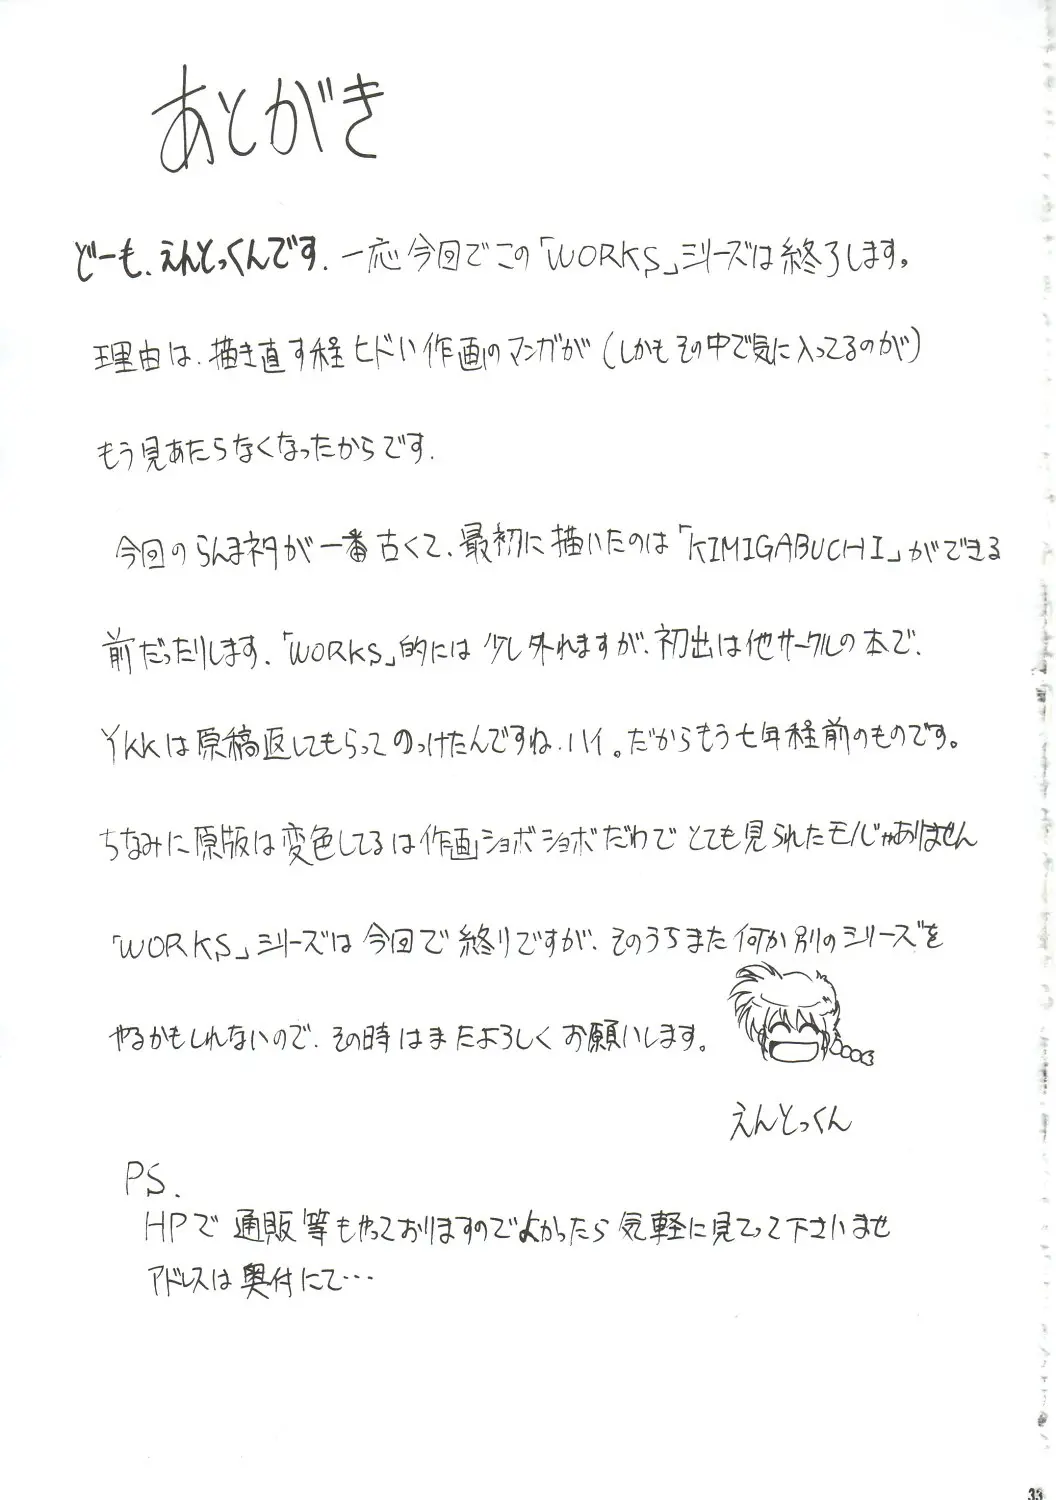 あとがき
どーも、えんとっくんです。一応今回でこの「WORKS」シリーズは終了します。
理由は、描き直す程ヒドい作画のマンガが(しかもその中で気に入ってるのが)
もう見あたらなくなったからです.
今回のらんまネタが一番古くて、最初に描いたのは「KIMIGABUCHI」ができる
前だったりします.「WORKS」的には少し外れますが、初出は他サークルの本で、
YKKは原稿返してもらってのっけたんですね、ハイ。だからもう七年程前のものです。
ちなみに原版は変色してるは作画ショボショボだわでとても見られたモノじゃありません
「WORKS」シリーズは今回で終りですが、そのうちまた何か別のシリーズを
やるかもしれないので、その時はまたよろしくお願いします。
えんとっくん
PS.
HPで通販等もやっておりますのでよかったら気軽に見てって下さいませ
アドレスは奥付にて…
33